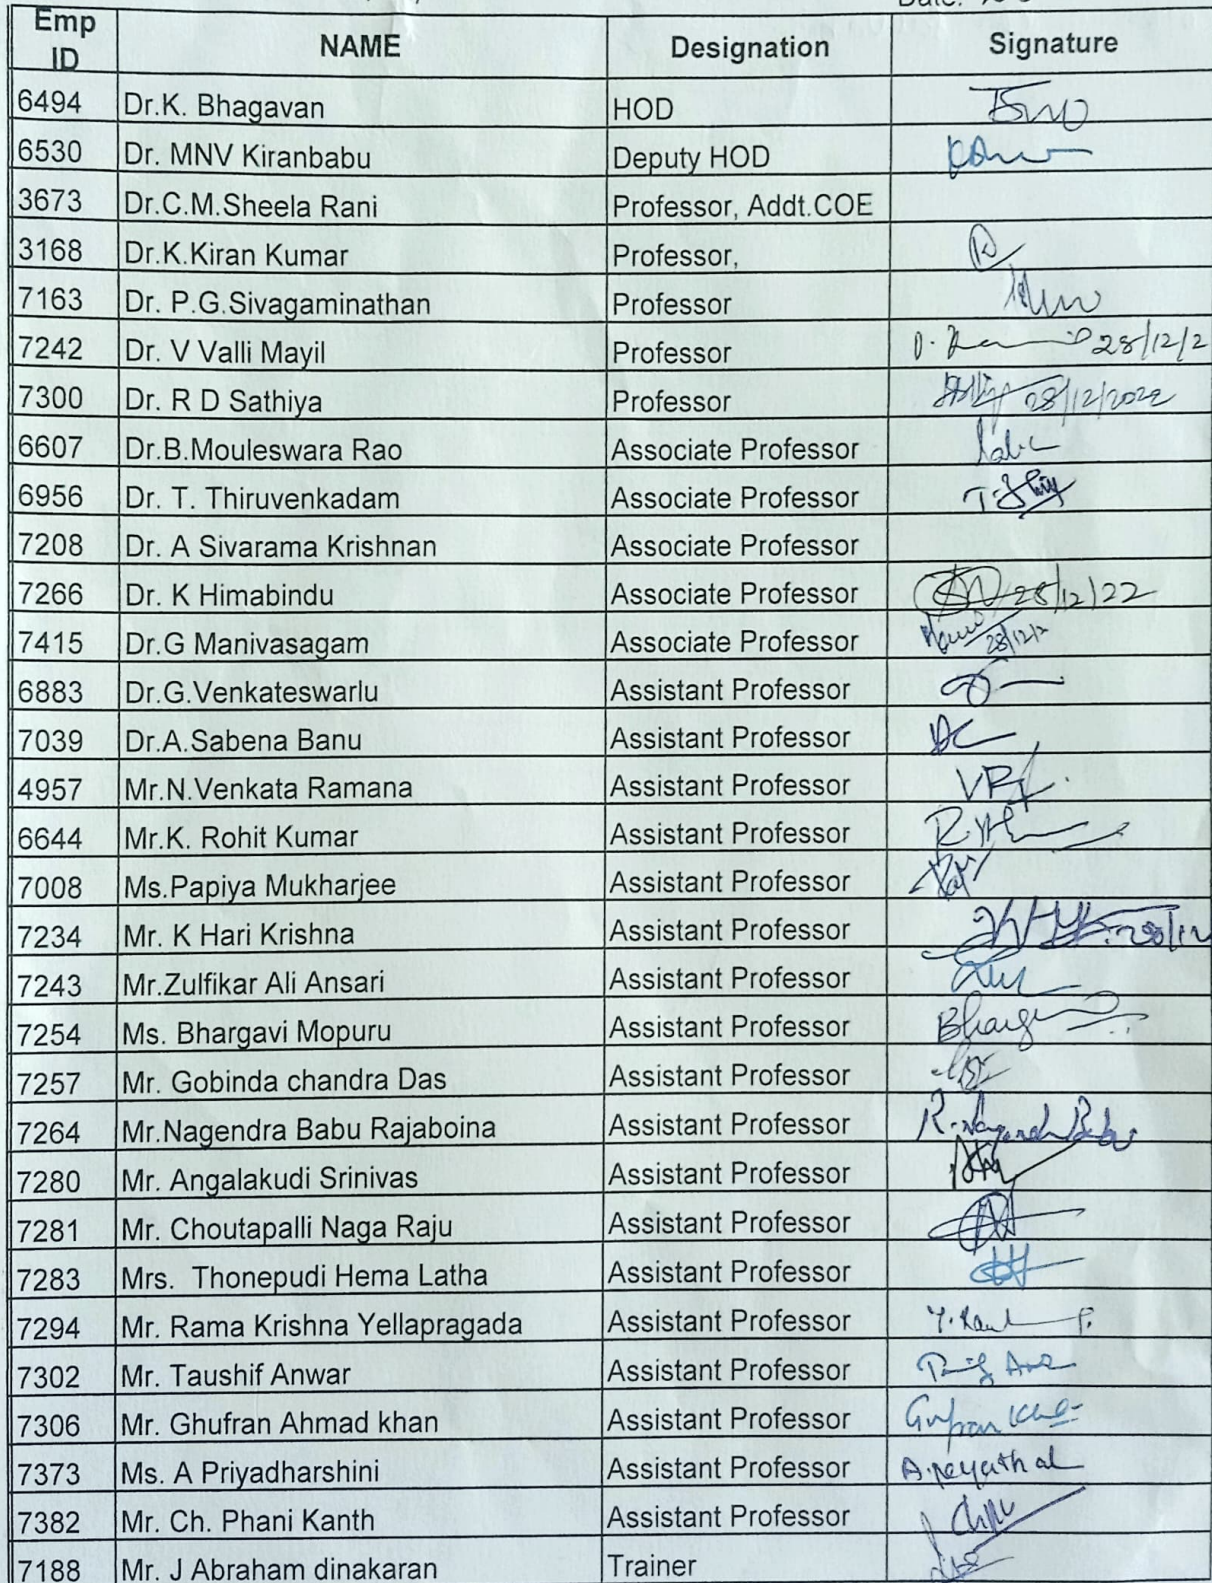 Date:
Emp ID NAME Designation Signature
6494 Dr.K. Bhagavan HOD
6530 Dr. MNV Kiranbabu Deputy HOD
3673 Dr.C.M.Sheela Rani Professor, Addt.COE
3168 Dr.K.Kiran Kumar Professor,
7163 Dr. P.G.Sivagaminathan Professor
7242 Dr. V Valli Mayil Professor 28/12/2
7300 Dr. R D Sathiya Professor 28/12/2022
6607 Dr.B.Mouleswara Rao Associate Professor
6956 Dr. T. Thiruvenkadam Associate Professor
7208 Dr. A Sivarama Krishnan Associate Professor
7266 Dr. K Himabindu Associate Professor 28/12/22
7415 Dr.G Manivasagam Associate Professor 28/12/2
6883 Dr.G.Venkateswarlu Assistant Professor
7039 Dr.A.Sabena Banu Assistant Professor
4957 Mr.N.Venkata Ramana Assistant Professor
6644 Mr.K. Rohit Kumar Assistant Professor
7008 Ms.Papiya Mukharjee Assistant Professor
7234 Mr. K Hari Krishna Assistant Professor 28/12
7243 Mr.Zulfikar Ali Ansari Assistant Professor
7254 Ms. Bhargavi Mopuru Assistant Professor
7257 Mr. Gobinda chandra Das Assistant Professor
7264 Mr.Nagendra Babu Rajaboina Assistant Professor R. Nagendra Babu
7280 Mr. Angalakudi Srinivas Assistant Professor
7281 Mr. Choutapalli Naga Raju Assistant Professor
7283 Mrs. Thonepudi Hema Latha Assistant Professor
7294 Mr. Rama Krishna Yellapragada Assistant Professor
7302 Mr. Taushif Anwar Assistant Professor
7306 Mr. Ghufran Ahmad khan Assistant Professor
7373 Ms. A Priyadharshini Assistant Professor
7382 Mr. Ch. Phani Kanth Assistant Professor
7188 Mr. J Abraham dinakaran Trainer